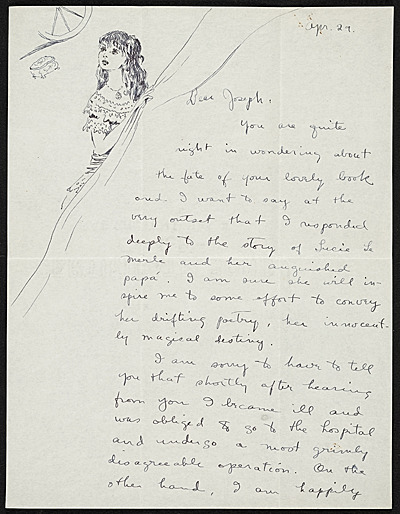 Apr. 29.
Dear Joseph:
You are quite
right in wondering about
the fate of your lovely book
and I want to say at the
very outset that I responded
deeply to the story of Lucie Le
Merle and her anguished
papá. I am sure she will in-
spire me to some effort to convey
her drifting poetry, her innocent-
ly magical destiny.
I am sorry to have to tell
you that shortly after hearing
from you I became ill and
was obliged to go to the hospital
and undergo a most grimly
disagreeable operation. On the
other hand, I am happily